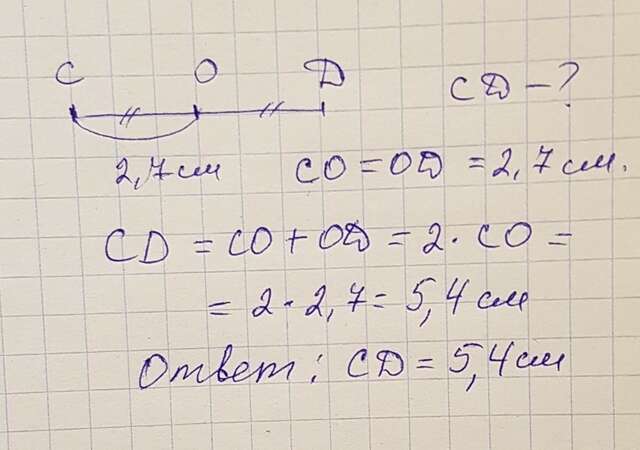 C O D
CD - ?
2,7 см
CO = OD = 2,7 см.
CD = CO + OD = 2 · CO =
= 2 · 2,7 = 5,4 см
Ответ: CD = 5,4 см